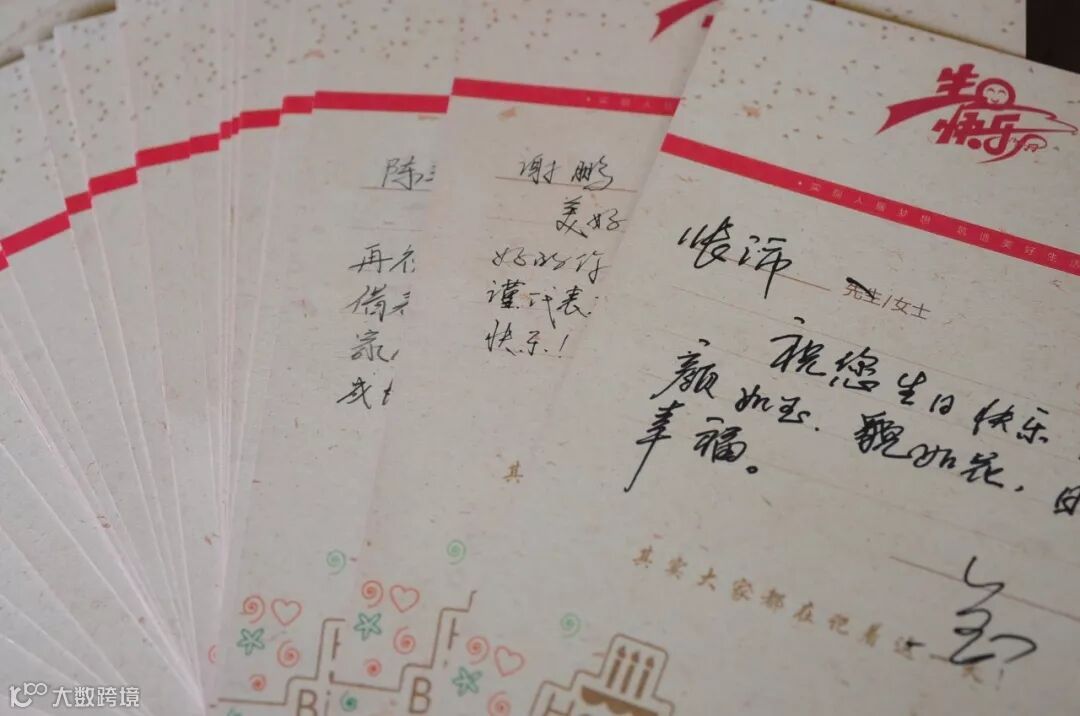 生日
快乐
·实现人居梦想 筑造美好生活
先生/女士
祝您生日快乐
颜如玉.貌如花.
幸福。
其实大家都在记着这一天!
谢鹏
美好
好的你
谨代表
快乐!
其
陈
再
借
家
感
Bi
B
H
大数跨境